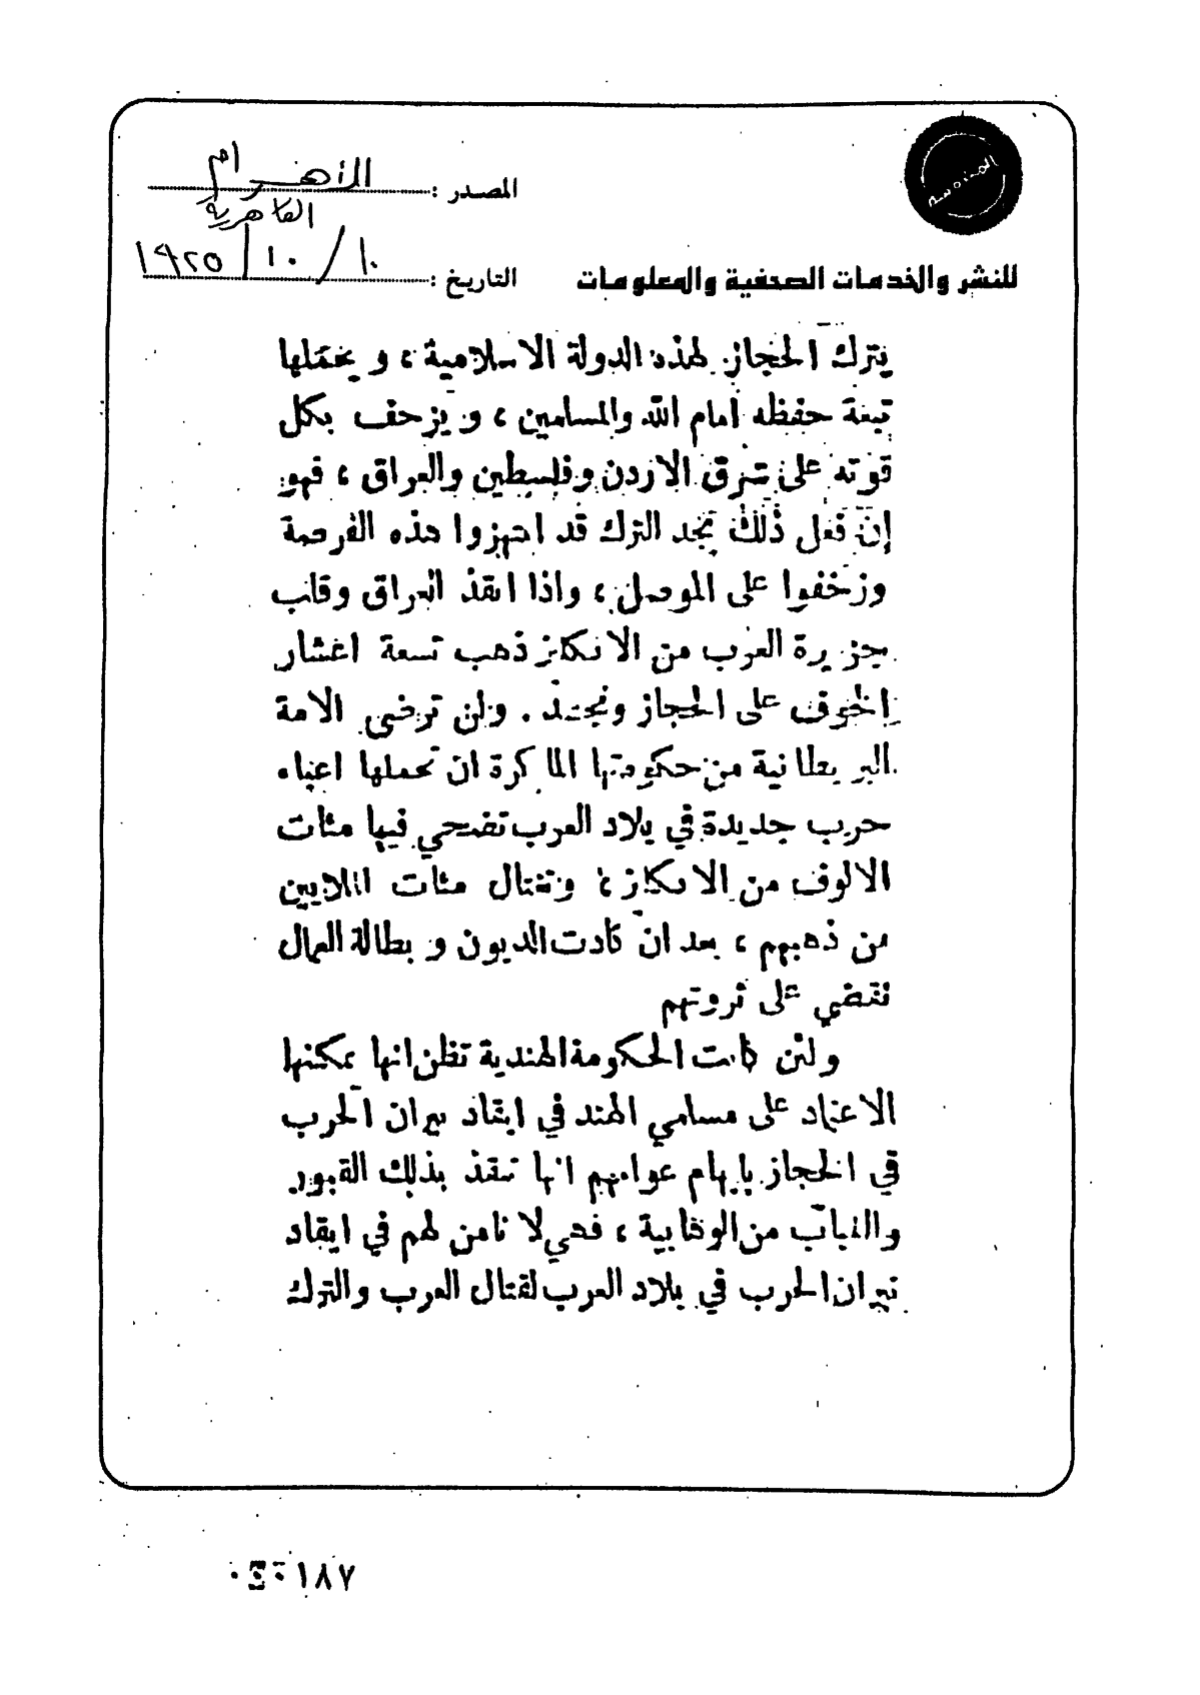 المصدر : الأهرام
القاهرية
التاريخ : ١٠ / ١٠ / ١٩٢٥
للنشر والخدمات الصحفية والمعلومات
يترك الحجاز لهذه الدولة الاسلامية ، و يحملها
تبعة حفظه امام الله والمسلمين ، ويزحف بكل
قوته على شرق الاردن وفلسطين والعراق ، فهو
إن فعل ذلك يجد الترك قد انتهزوا هذه الفرصة
وزحفوا على الموصل ، واذا انقذ العراق وقلب
جزيرة العرب من الانكليز ذهب تسعة اعشار
الخوف على الحجاز ونجد . ولن ترضى الامة
البريطانية من حكومتها الماكرة ان تحملها اعباء
حرب جديدة في بلاد العرب تضحي فيها مئات
الالوف من الانكليز ، وتغتال مئات الملايين
من ذهبهم ، بعد ان كادت الديون و بطالة العمال
تقضي على ثروتهم
ولئن كانت الحكومة الهندية تظن انها يمكنها
الاعتماد على مسلمي الهند في ايقاد نيران الحرب
في الحجاز بايهام عوامهم انها تنقذ بذلك القبور
والقباب من الوهابية ، فهي لا تأمن لهم في ايقاد
نيران الحرب في بلاد العرب لقتال العرب والترك
١٨٧